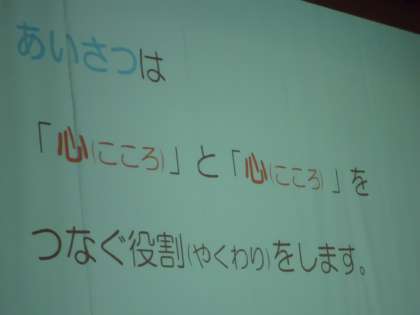 あいさつは
「心(こころ)」と「心(こころ)」を
つなぐ役割(やくわり)をします。